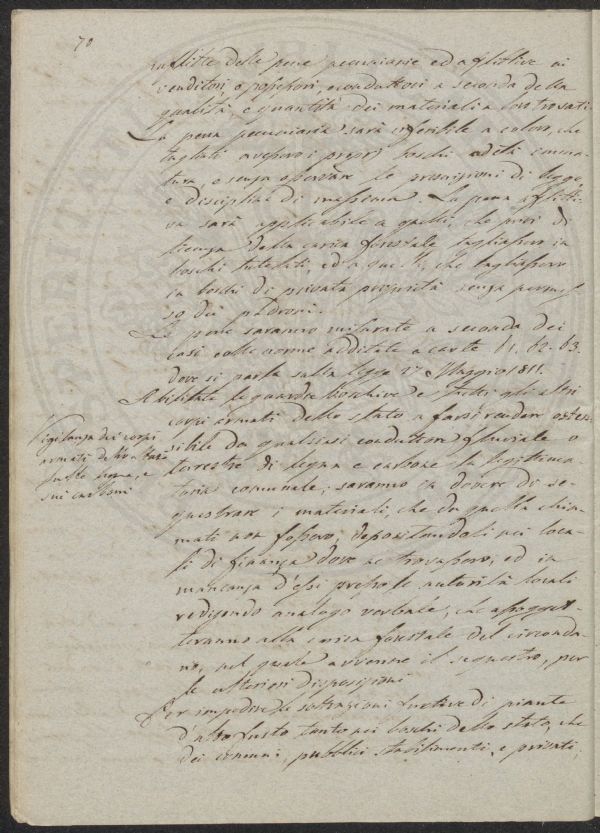 70
inflitte delle pene pecuniarie ed aflittive ai
venditori o possessori, e conduttori a seconda della
qualità, e quantità dei materiali a loro trovati.
La pena pecuniaria sarà inferibile a coloro, che
tagliati avessero i proprj boschi
e senza osservare le prescrizioni di legge,
e discipline di massima. La pena aflitti-
va sarà applicabile a quelli, che privi di
licenza della carica forestale tagliassero in
boschi tutelati, ed a quelli, che tagliassero
in boschi di privata proprietà senza permes-
so dei padroni.
Le pene saranno misurate a seconda dei
casi colle norme additate a carte 61. 62. 63.
dove si parla sulla legge 27 Maggio 1811.
Abilitate le guardie boschive e tutti gli altri
corpi armati dello stato a farsi rendere osten-
sibile da qualsiasi conduttore fluviale o
terrestre di legna e carbone la
comunale; saranno in dovere di se-
questrare i materiali, che da quella
mati non fossero, depositandoli nei loca-
li di finanza dove ne trovassero, ed in
mancanza d'essi presso le autorità locali
redigendo analogo verbale, che assogget-
teranno alla carica forestale del circonda-
rio, nel quale avvenne il sequestro, per
le ulteriori disposizioni.
Per impedire le sottrazioni furtive di piante
d'alto fusto tanto nei boschi dello stato, che
dei comuni, pubblici stabilimenti, e privati,
Vigilanza dei corpi
armati dello stato
sulle legna, e
sui carboni